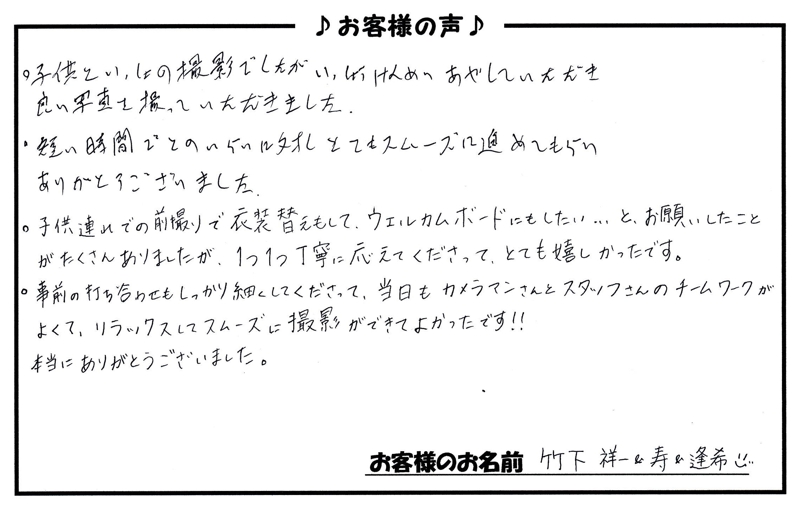 ♪お客様の声♪
・子供といっしょの撮影でしたがいっしょうけんめいあやしていただき
良い写真を撮っていただきました。
・短い時間で
とてもスムーズに進めてもらい
ありがとうございました。
・子供連れでの前撮りで衣装替えもして、ウェルカムボードにもしたい…と、お願いしたこと
がたくさんありましたが、1つ1つ丁寧に応えてくださって、とても嬉しかったです。
・事前の打ち合わせもしっかり細くしてくださって、当日もカメラマンさんとスタッフさんのチームワークが
よくて、リラックスしてスムーズに撮影ができてよかったです!!
本当にありがとうございました。
お客様のお名前 竹下 祥一&寿&逢希